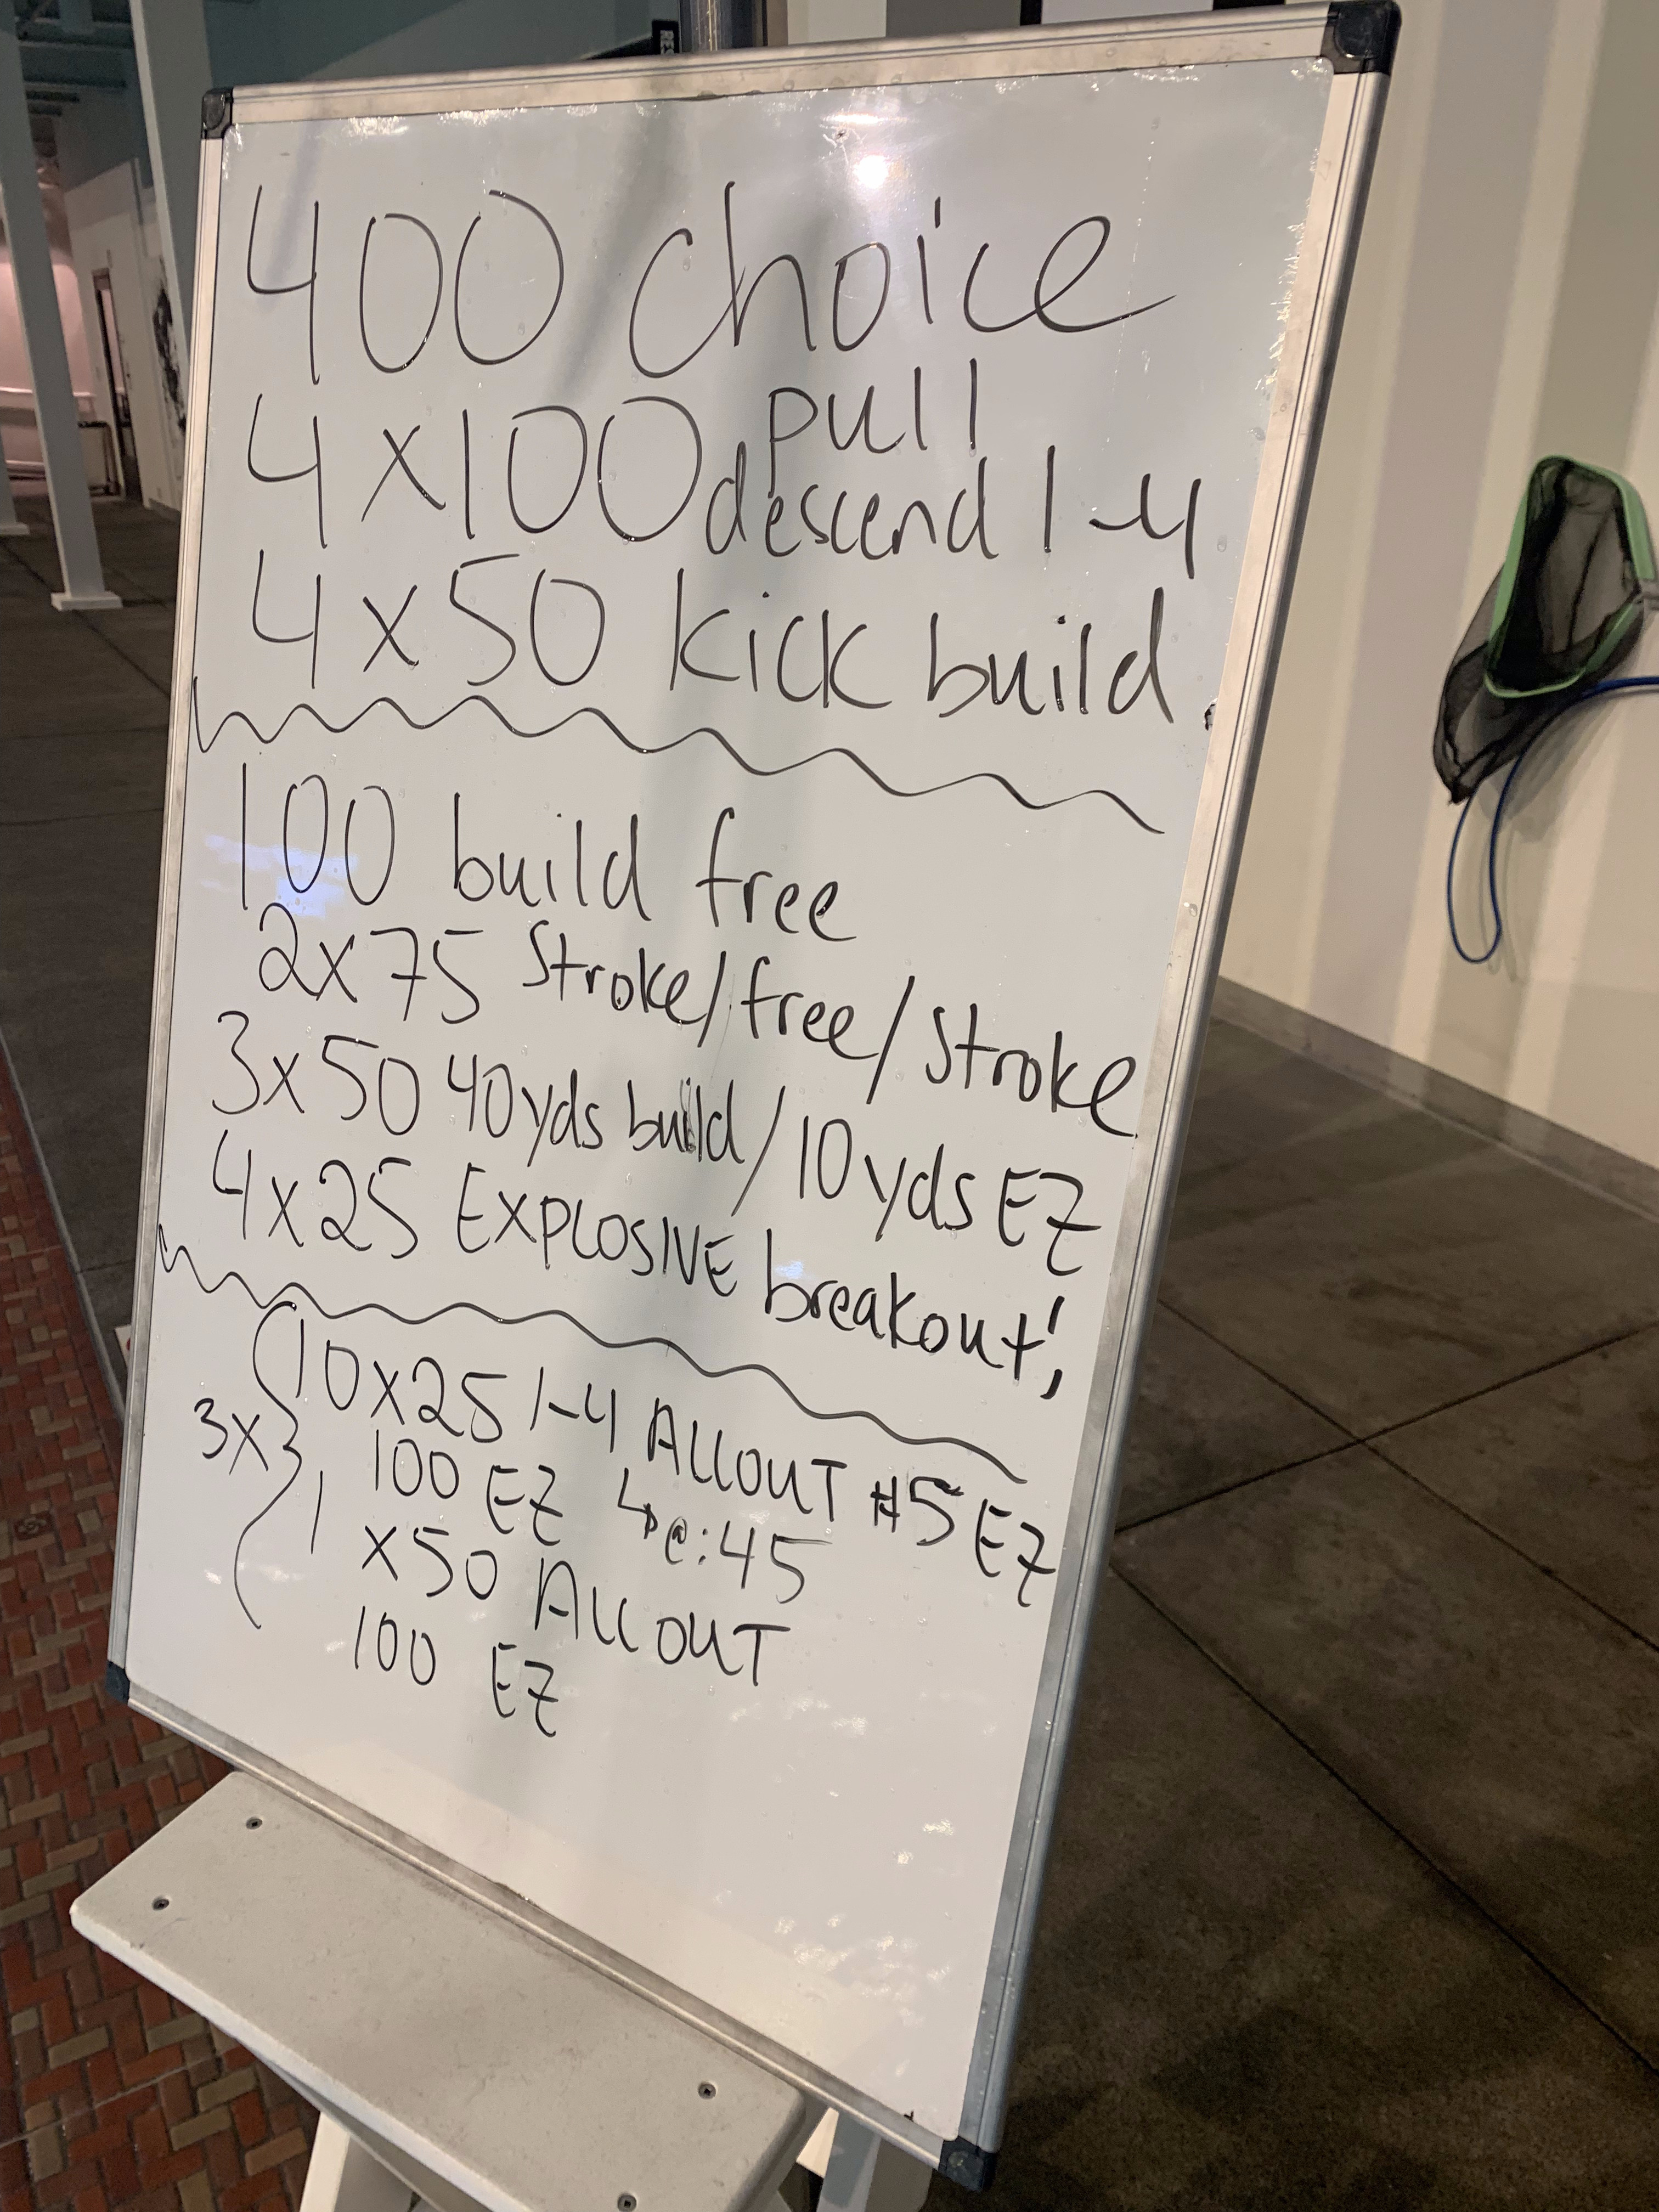 400 choice
4x100 pull
descend 1-4
4x50 kick build
100 build free
2x75 Stroke/free/Stroke
3x50 40yds build/10yds EZ
4x25 EXPLOSIVE breakout!
3x
10x25 1-4 ALLOUT #5 EZ
100 EZ ↳@:45
1 x50 ALLOUT
100 EZ